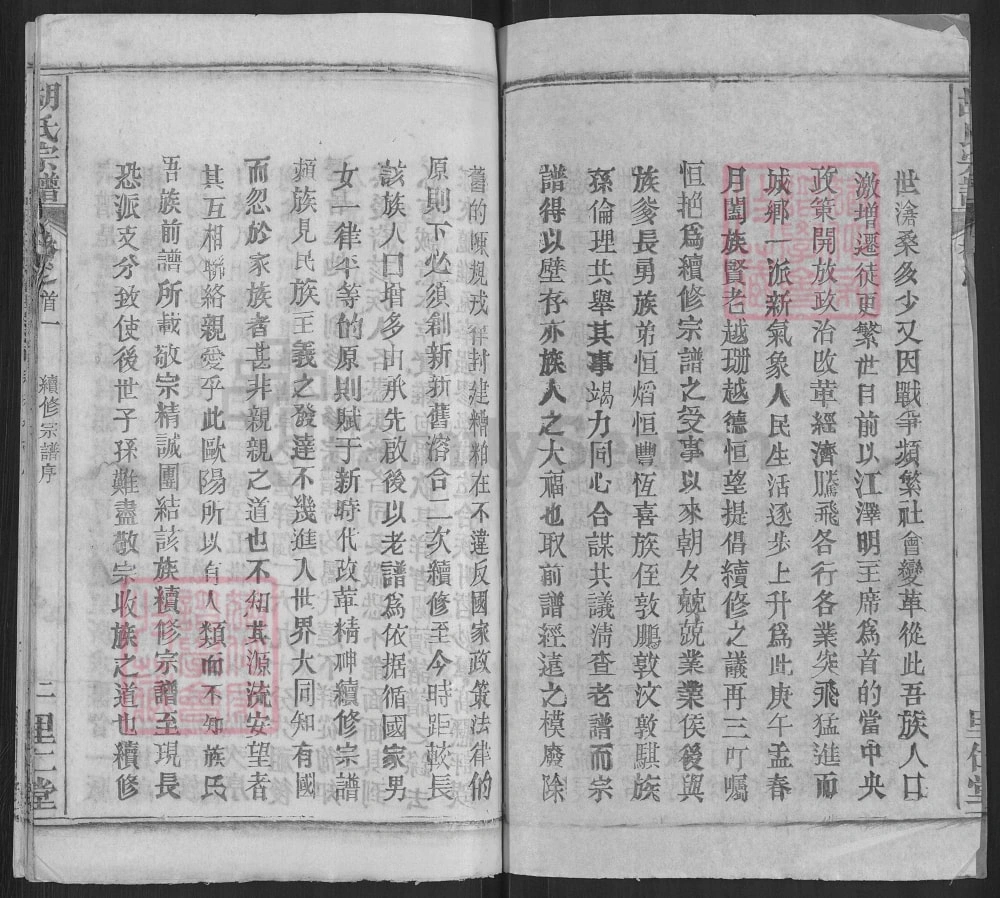 世滄桑多少又因戰爭頻繁社會變革從此吾族人口
激增遷徒更繁世目前以江澤明主席爲首的當中央
政策開放政治改革經濟騰飛各行各業突飛猛進而
城鄉一派新氣象人民生活逐步上升爲此庚午孟春
月闔族賢老越珊越德恒望提倡續修之議再三叮囑
恒艳爲續修宗譜之受事以來朝夕兢兢業業侯後與
族爹長勇族弟恒熖恒豐恆喜族侄敦鵬敦汶敦騏族
孫倫理共舉其事竭力同心合謀共議清查老譜而宗
譜得以壁存亦族人之大福也取前譜經遠之模廢除
舊的陳規戒律封建糟粕在不違反國家政策法律的
原則下必須創新新舊溶合二次續修至今時距較長
該族人口增多由承先啟後以老譜爲依据循國家男
女一律平等的原則賦于新時代政革精神續修宗譜
頻族見民族主義之發達不幾進入世界大同知有國
而忽於家族者甚非親親之道也不知其源流安望者
其互相聯絡親愛乎此歐陽所以有人類而不知族民
吾族前譜所載敬宗精誠團結該族續修宗譜至現長
恐派支分致使後世子孫難盡敬宗收族之道也續修
胡氏宗譜
首一
續修宗譜序
二里仁堂